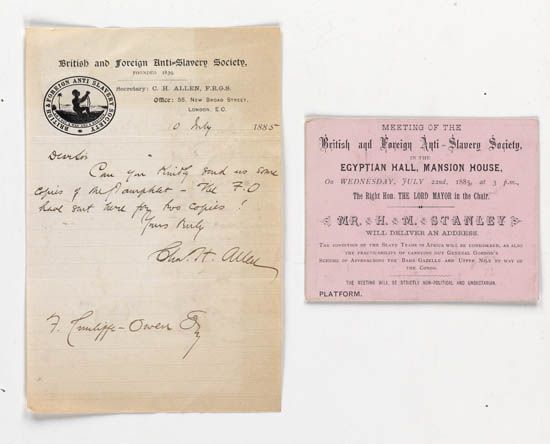 British and Foreign Anti-Slavery Society,
FOUNDED 1839.
Secretary: C. H. ALLEN, F.R.G.S.
Office: 55, NEW BROAD STREET,
LONDON, E.C.
BRITISH & FOREIGN ANTI SLAVERY SOCIETY
July 1885
Dear Sir
Can you kindly send us some
copies of Pamphlet - The F.O
have sent here for two copies!
Yours truly
Chas H. Allen
F. Cunliffe-Owen Esq
MEETING OF THE
British and Foreign Anti-Slavery Society,
IN THE
EGYPTIAN HALL, MANSION HOUSE,
On WEDNESDAY, JULY 22nd, 1885, at 3 p.m.,
The Right Hon. THE LORD MAYOR in the Chair.
MR. H. M. STANLEY
WILL DELIVER AN ADDRESS.
THE CONDITION OF THE SLAVE TRADE IN AFRICA WILL BE CONSIDERED, AS ALSO
THE PRACTICABILITY OF CARRYING OUT GENERAL GORDON'S
SCHEME OF APPROACHING THE BAHR GAZELLE AND UPPER NILE BY WAY OF
THE CONGO.
THE MEETING WILL BE STRICTLY NON-POLITICAL AND UNSECTARIAN.
PLATFORM.